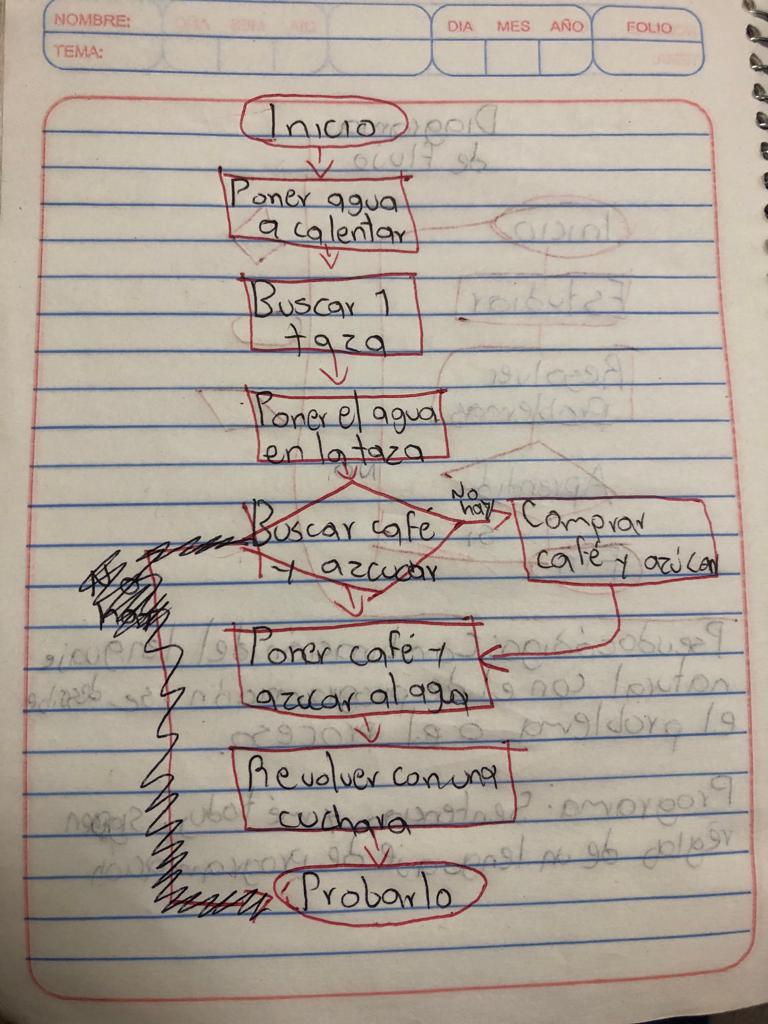 NOMBRE:
DIA MES AÑO
FOLIO
TEMA:
Inicio
Poner agua
a calentar
Buscar 1
taza
Poner el agua
en la taza
Buscar café
y azcucar
No
hay
Comprar
café y azúcar
Poner café y
azucar al agua
Revolver con una
cuchara
Probarlo